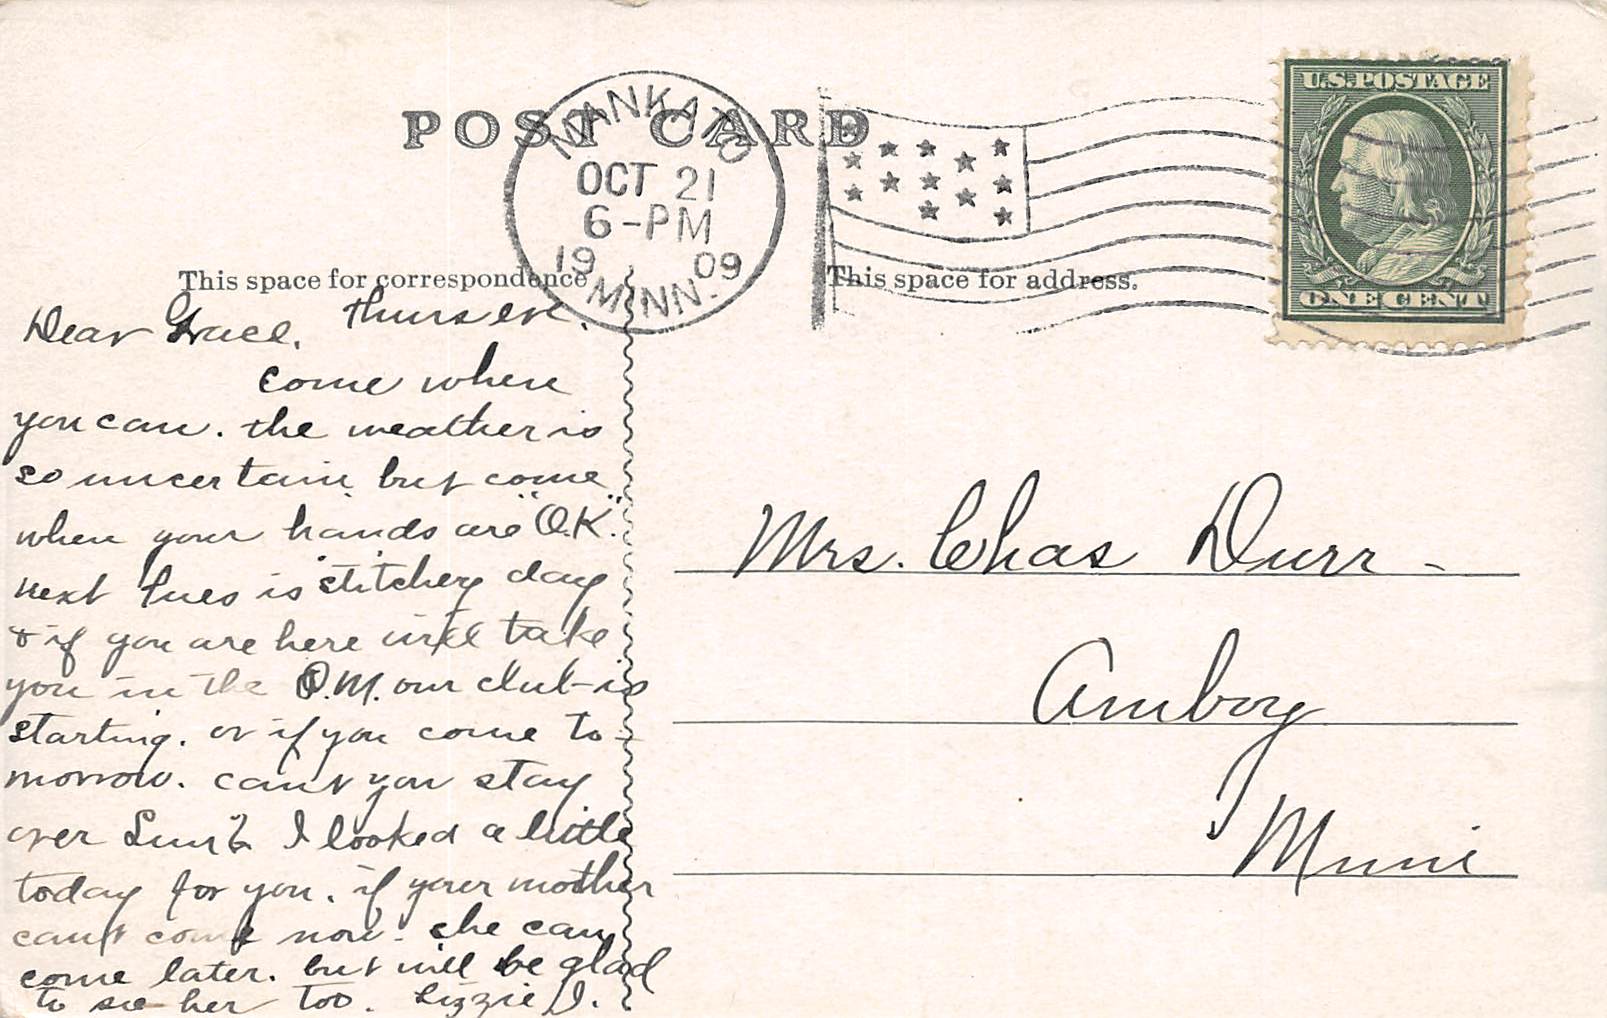 POST CARD
MANKATO
OCT 21
6-PM
1909
MINN.
U.S. POSTAGE
ONE CENT
This space for correspondence
This space for address.
Thurs eve.
Dear Grace,
Come when
you can. the weather is
so uncertain but come
when your hands are "O.K."
next Tues is stitchery day
& if you are here will take
you in the P.M. our club is
starting. or if you come to-
morrow. can't you stay
over Sun? I looked a little
today for you. if your mother
can't come now. she can
come later. but will be glad
to see her too. Lizzie D.
Mrs. Chas Durr -
Amboy
Minn